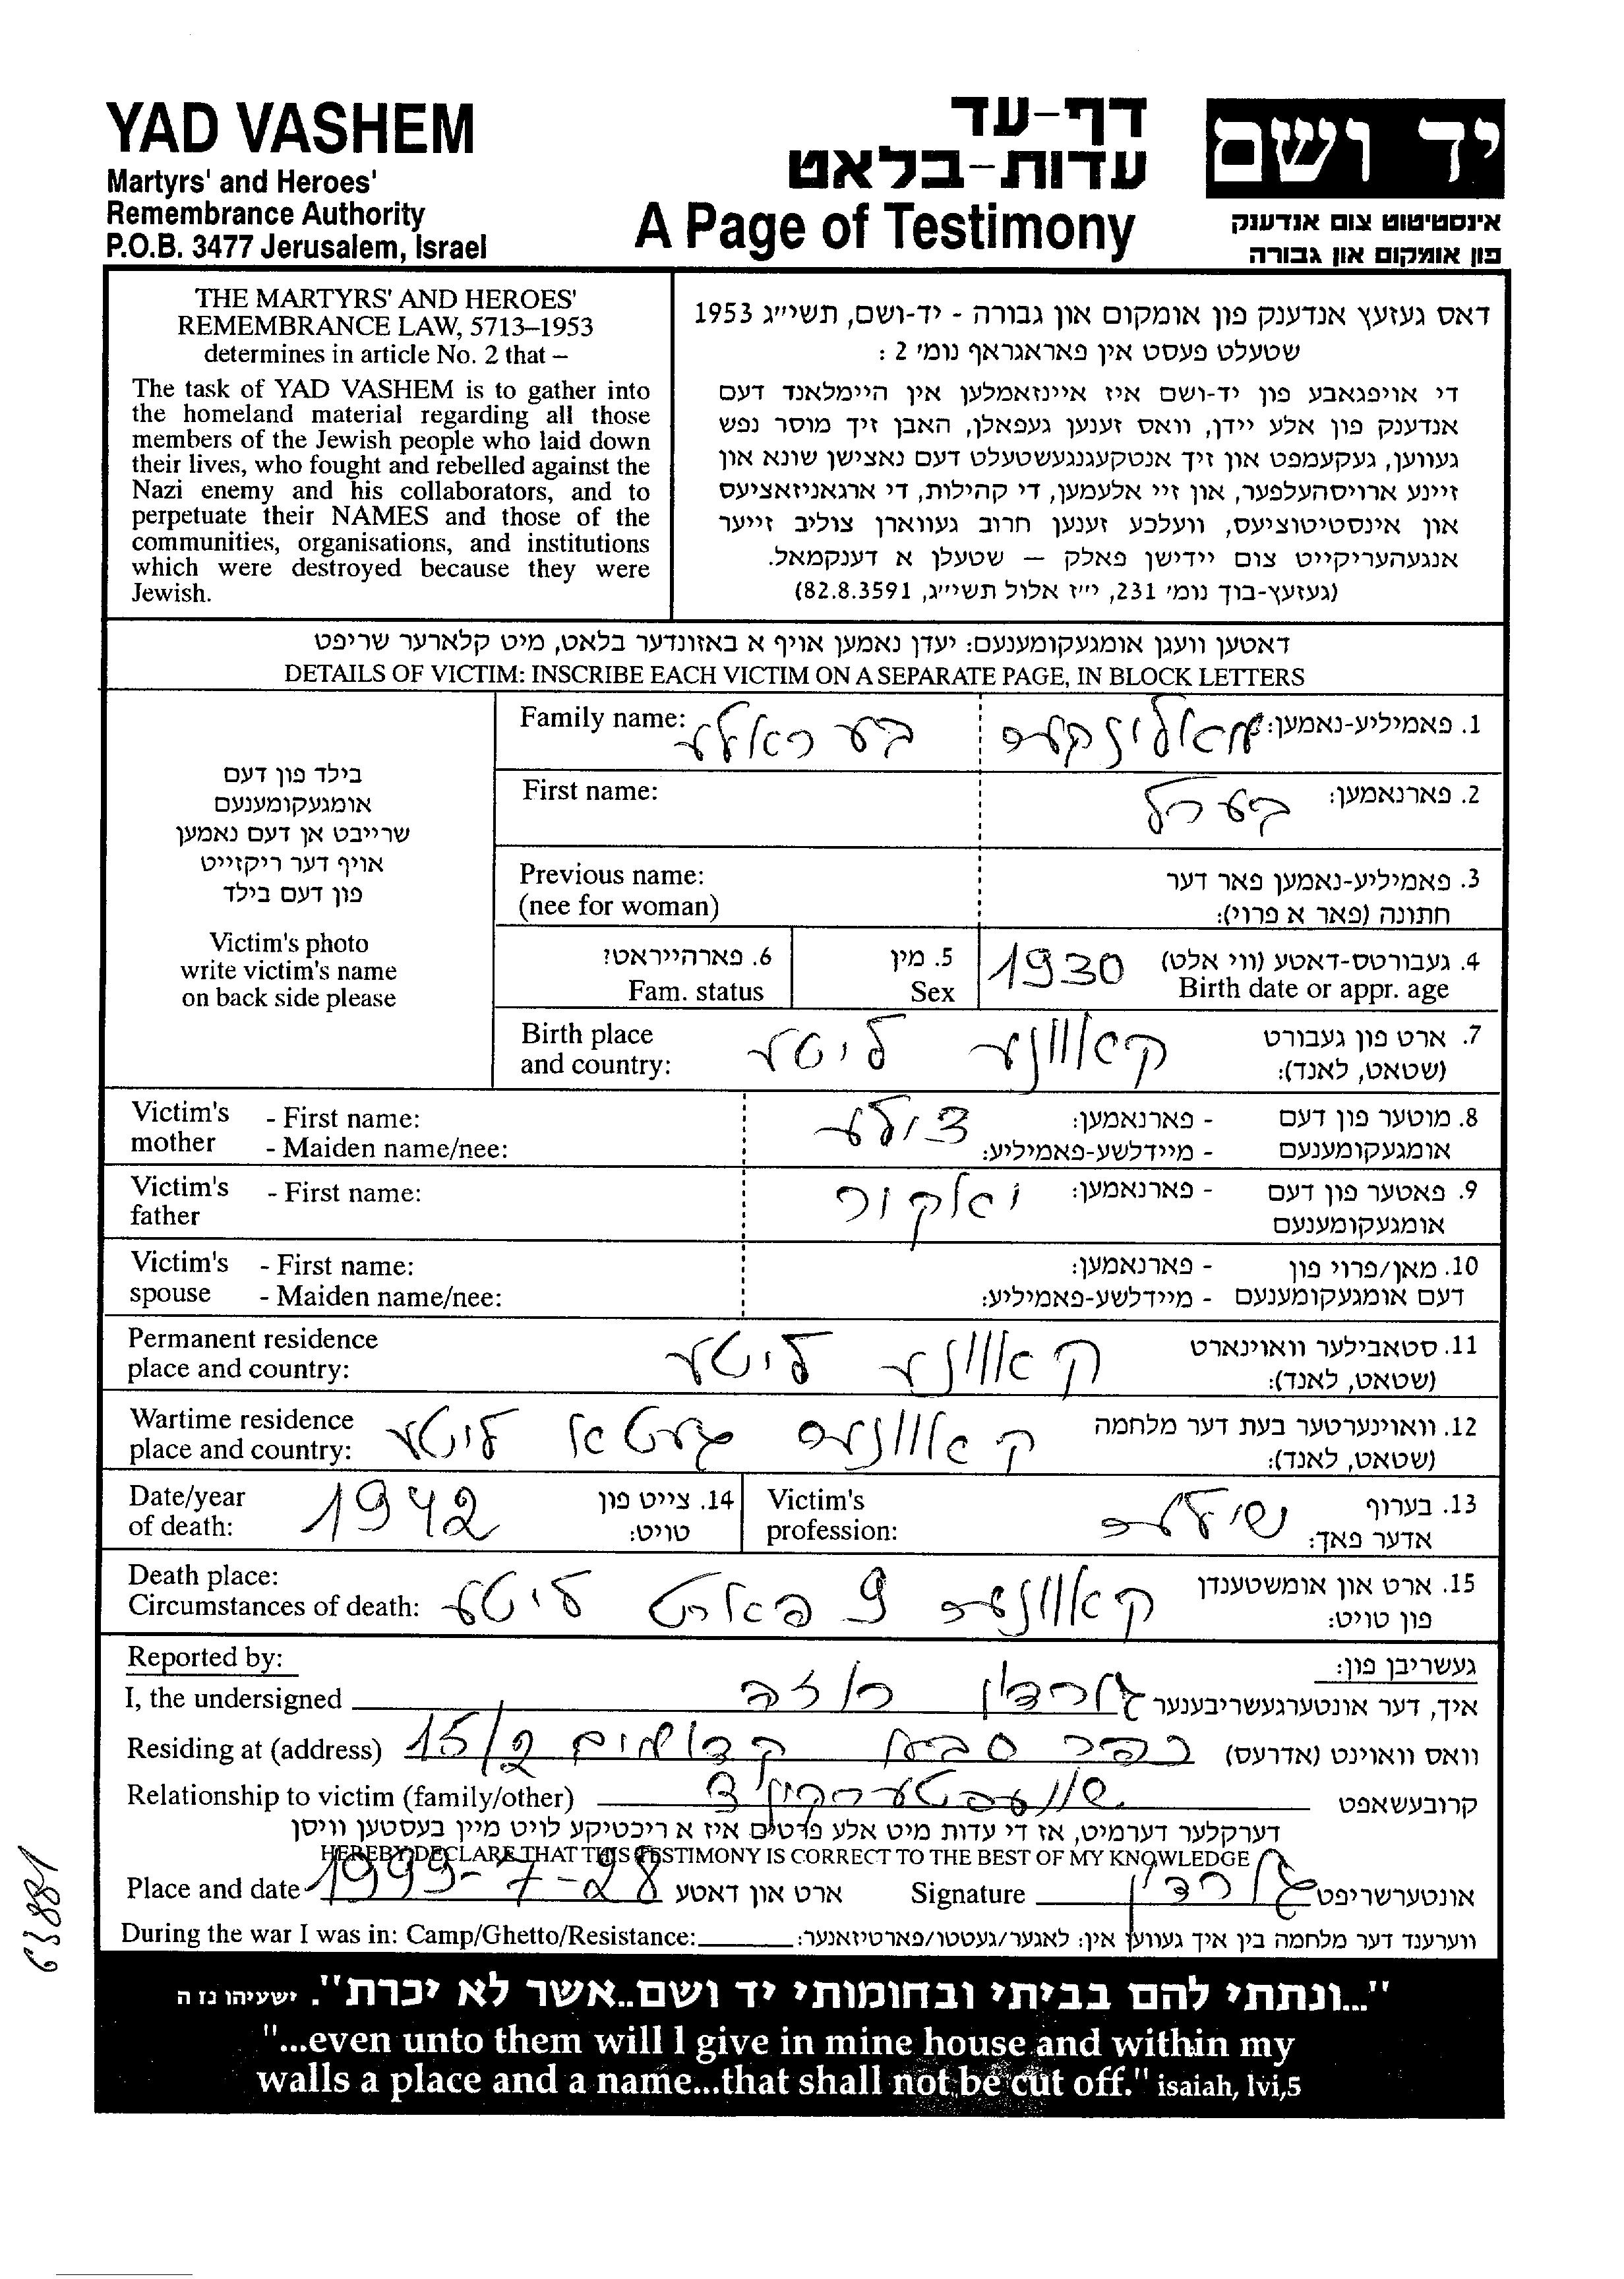 YAD VASHEM
Martyrs' and Heroes'
Remembrance Authority
P.O.B. 3477 Jerusalem, Israel
דף-עד
עדות-בלאט
A Page of Testimony
יד ושם
אינסטיטוט צום אנדענק
פון אומקום און גבורה
THE MARTYRS' AND HEROES'
REMEMBRANCE LAW, 5713–1953
determines in article No. 2 that –
The task of YAD VASHEM is to gather into
the homeland material regarding all those
members of the Jewish people who laid down
their lives, who fought and rebelled against the
Nazi enemy and his collaborators, and to
perpetuate their NAMES and those of the
communities, organisations, and institutions
which were destroyed because they were
Jewish.
דאס געזעץ אנדענק פון אומקום און גבורה - יד-ושם, תשי״ג 1953
שטעלט פעסט אין פאראגראף נומ׳ 2 :
די אויפגאבע פון יד-ושם איז איינזאמלען אין היימלאנד דעם
אנדענק פון אלע יידן, וואס זענען געפאלן, האבן זיך מוסר נפש
געווען, געקעמפט און זיך אנטקעגנגעשטעלט דעם נאצישן שונא און
זיינע ארויסהעלפער, און זיי אלעמען, די קהילות, די ארגאניזאציעס
און אינסטיטוציעס, וועלכע זענען חרוב געווארן צוליב זייער
אנגעהעריקייט צום יידישן פאלק — שטעלן א דענקמאל.
(געזעץ-בוך נומ׳ 231, י״ז אלול תשי״ג, 82.8.3591)
דאטען וועגן אומגעקומענעם: יעדן נאמען אויף א באזונדער בלאט, מיט קלארער שריפט
DETAILS OF VICTIM: INSCRIBE EACH VICTIM ON A SEPARATE PAGE, IN BLOCK LETTERS
בילד פון דעם
אומגעקומענעם
שרייבט אן דעם נאמען
אויף דער ריקזייט
פון דעם בילד
Victim's photo
write victim's name
on back side please
1. פאמיליע-נאמען: Family name:
2. פארנאמען: בערל First name:
3. פאמיליע-נאמען פאר דער Previous name:
חתונה (פאר א פרוי): (nee for woman)
4. געבורטס-דאטע (ווי אלט) 1930 5. מין 6. פארהייראט?
Birth date or appr. age Sex Fam. status
7. ארט פון געבורט קאוונע ליטע Birth place
(שטאט, לאנד): and country:
8. מוטער פון דעם - פארנאמען: צילע Victim's - First name:
אומגעקומענעם - מיידלשע-פאמיליע: mother - Maiden name/nee:
9. פאטער פון דעם - פארנאמען: Victim's - First name:
אומגעקומענעם father
10. מאן/פרוי פון - פארנאמען: Victim's - First name:
דעם אומגעקומענעם - מיידלשע-פאמיליע: spouse - Maiden name/nee:
11. סטאבילער וואוינארט קאוונע ליטע Permanent residence
(שטאט, לאנד): place and country:
12. וואוינערטער בעת דער מלחמה קאוונער געטא ליטע Wartime residence
(שטאט, לאנד): place and country:
13. בערוף שילער Victim's
אדער פאך: profession:
14. צייט פון 1942 Date/year
טויט: of death:
15. ארט און אומשטענדן קאוונער 9 פארט ליטע Death place:
פון טויט: Circumstances of death:
געשריבן פון: Reported by:
איך, דער אונטערגעשריבענער גורדון רוזה I, the undersigned
וואס וואוינט (אדרעס) כפר סבא קדושים 15/2 Residing at (address)
קרובעשאפט שוועסטערקינד Relationship to victim (family/other)
דערקלער דערמיט, אז די עדות מיט אלע פרטים איז א ריכטיקע לויט מיין בעסטען וויסן
HEREBY DECLARE THAT THIS TESTIMONY IS CORRECT TO THE BEST OF MY KNOWLEDGE
Place and date 1999-7-28 ארט און דאטע Signature גורדון אונטערשריפט
During the war I was in: Camp/Ghetto/Resistance: ווערענד דער מלחמה בין איך געווען אין: לאגער/געטטו/פארטיזאנער:
"...ונתתי להם בביתי ובחומותי יד ושם..אשר לא יכרת". ישעיהו נז ה
"...even unto them will I give in mine house and within my
walls a place and a name...that shall not be cut off." isaiah, lvi,5